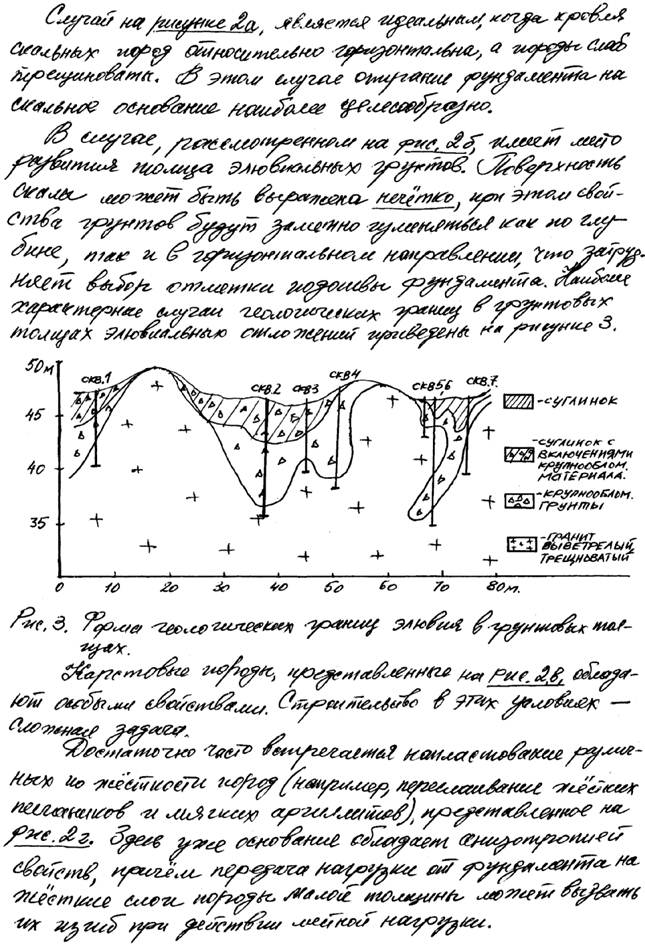 Случай на рисунке 2а, является идеальным, когда кровля
скальных пород относительно горизонтальна, а породы слаб
трещиноваты. В этом случае опирание фундамента на
скальное основание наиболее целесообразно.
В случае, рассмотренном на рис. 2б, имеет место
развития толща элювиальных грунтов. Поверхность
скалы может быть выражена нечётко, при этом свой-
ства грунтов будут заметно изменяться как по глу-
бине, так и в горизонтальном направлении, что затруд-
няет выбор отметки подошвы фундамента. Наиболее
характерные случаи геологических границ в грунтовых
толщах элювиальных отложений приведены на рисунке 3.
50м
СКВ.1
СКВ.2
СКВ3
СКВ4
СКВ5,6
СКВ.7
45
40
35
0 10 20 30 40 50 60 70 80м.
-СУГЛИНОК
-СУГЛИНОК С
ВКЛЮЧЕНИЯМИ
КРУПНООБЛОМ.
МАТЕРИАЛА.
-КРУПНООБЛОМ.
ГРУНТЫ
-ГРАНИТ
ВЫВЕТРЕЛЫЙ,
ТРЕЩНОВАТЫЙ
Рис. 3. Форма геологических границ элювия в грунтовых тол-
щах.
Карстовые породы, представленные на рис. 2в, облада-
ют особыми свойствами. Строительство в этих условиях —
сложная задача.
Достаточно часто встречается напластование различ-
ных по жёсткости пород (например, переслаивание жёстких
песчаников и мягких аргиллитов), представленное на
рис. 2г. Здесь уже основание обладает анизотропией
свойств, причём передача нагрузки от фундамента на
жёсткие слои породы малой толщины может вызвать
их изгиб при действии местной нагрузки.